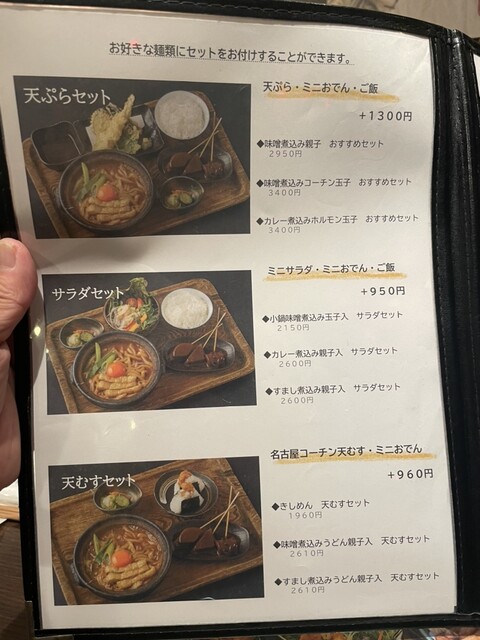 お好きな麺類にセットをお付けすることができます。
天ぷらセット
天ぷら・ミニおでん・ご飯
+1300円
◆味噌煮込み親子 おすすめセット
2950円
◆味噌煮込みコーチン玉子 おすすめセット
3400円
◆カレー煮込みホルモン玉子 おすすめセット
3400円
サラダセット
ミニサラダ・ミニおでん・ご飯
+950円
◆小鍋味噌煮込み玉子入 サラダセット
2150円
◆カレー煮込み親子入 サラダセット
2600円
◆すまし煮込み親子入 サラダセット
2600円
天むすセット
名古屋コーチン天むす・ミニおでん
+960円
◆きしめん 天むすセット
1960円
◆味噌煮込みうどん親子入 天むすセット
2610円
◆すまし煮込みうどん親子入 天むすセット
2610円